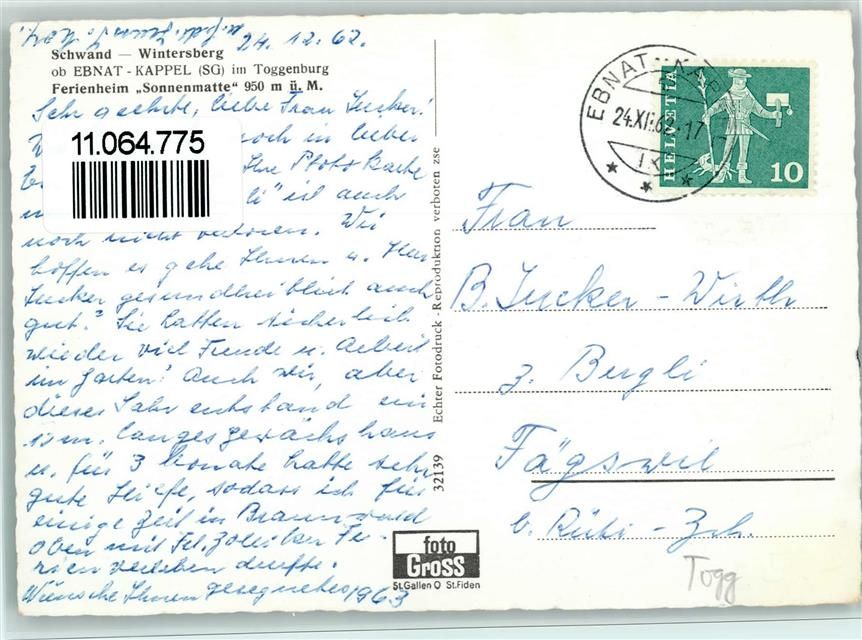 24.12.62.
Schwand — Wintersberg
ob EBNAT-KAPPEL (SG) im Toggenburg
Ferienheim „Sonnenmatte" 950 m ü. M.
Sehr geehrte, liebe Frau Jucker!
11.064.775
noch in lieber
Ihre Photo Karte
ist auch
noch nicht verloren. Wir
hoffen es gehe Ihnen u. Herr
Jucker gesundheitlich auch
gut? Sie hatten sicherlich
wieder viel Freude u. Arbeit
im Garten! Auch wir, aber
dieses Jahr entstand ein
12 m. langes Gewächshaus
u. für 3 Monate hatte sehr
gute Hilfe, sodass ich für
einige Zeit in Braunwald
oben mit Frl. Zollikер Fe-
rien verleben durfte.
Wünsche Ihnen gesegnetes 1963
32139 Echter Fotodruck - Reproduktion verboten zse
foto
Gross
St.Gallen O St.Fiden
EBNAT-KAPPEL
24.XII.62-17
IX
HELVETIA
10
Frau
B. Jucker-Wirth
z. Bergli
Fägswil
b. Rüti-Zch.
Togg